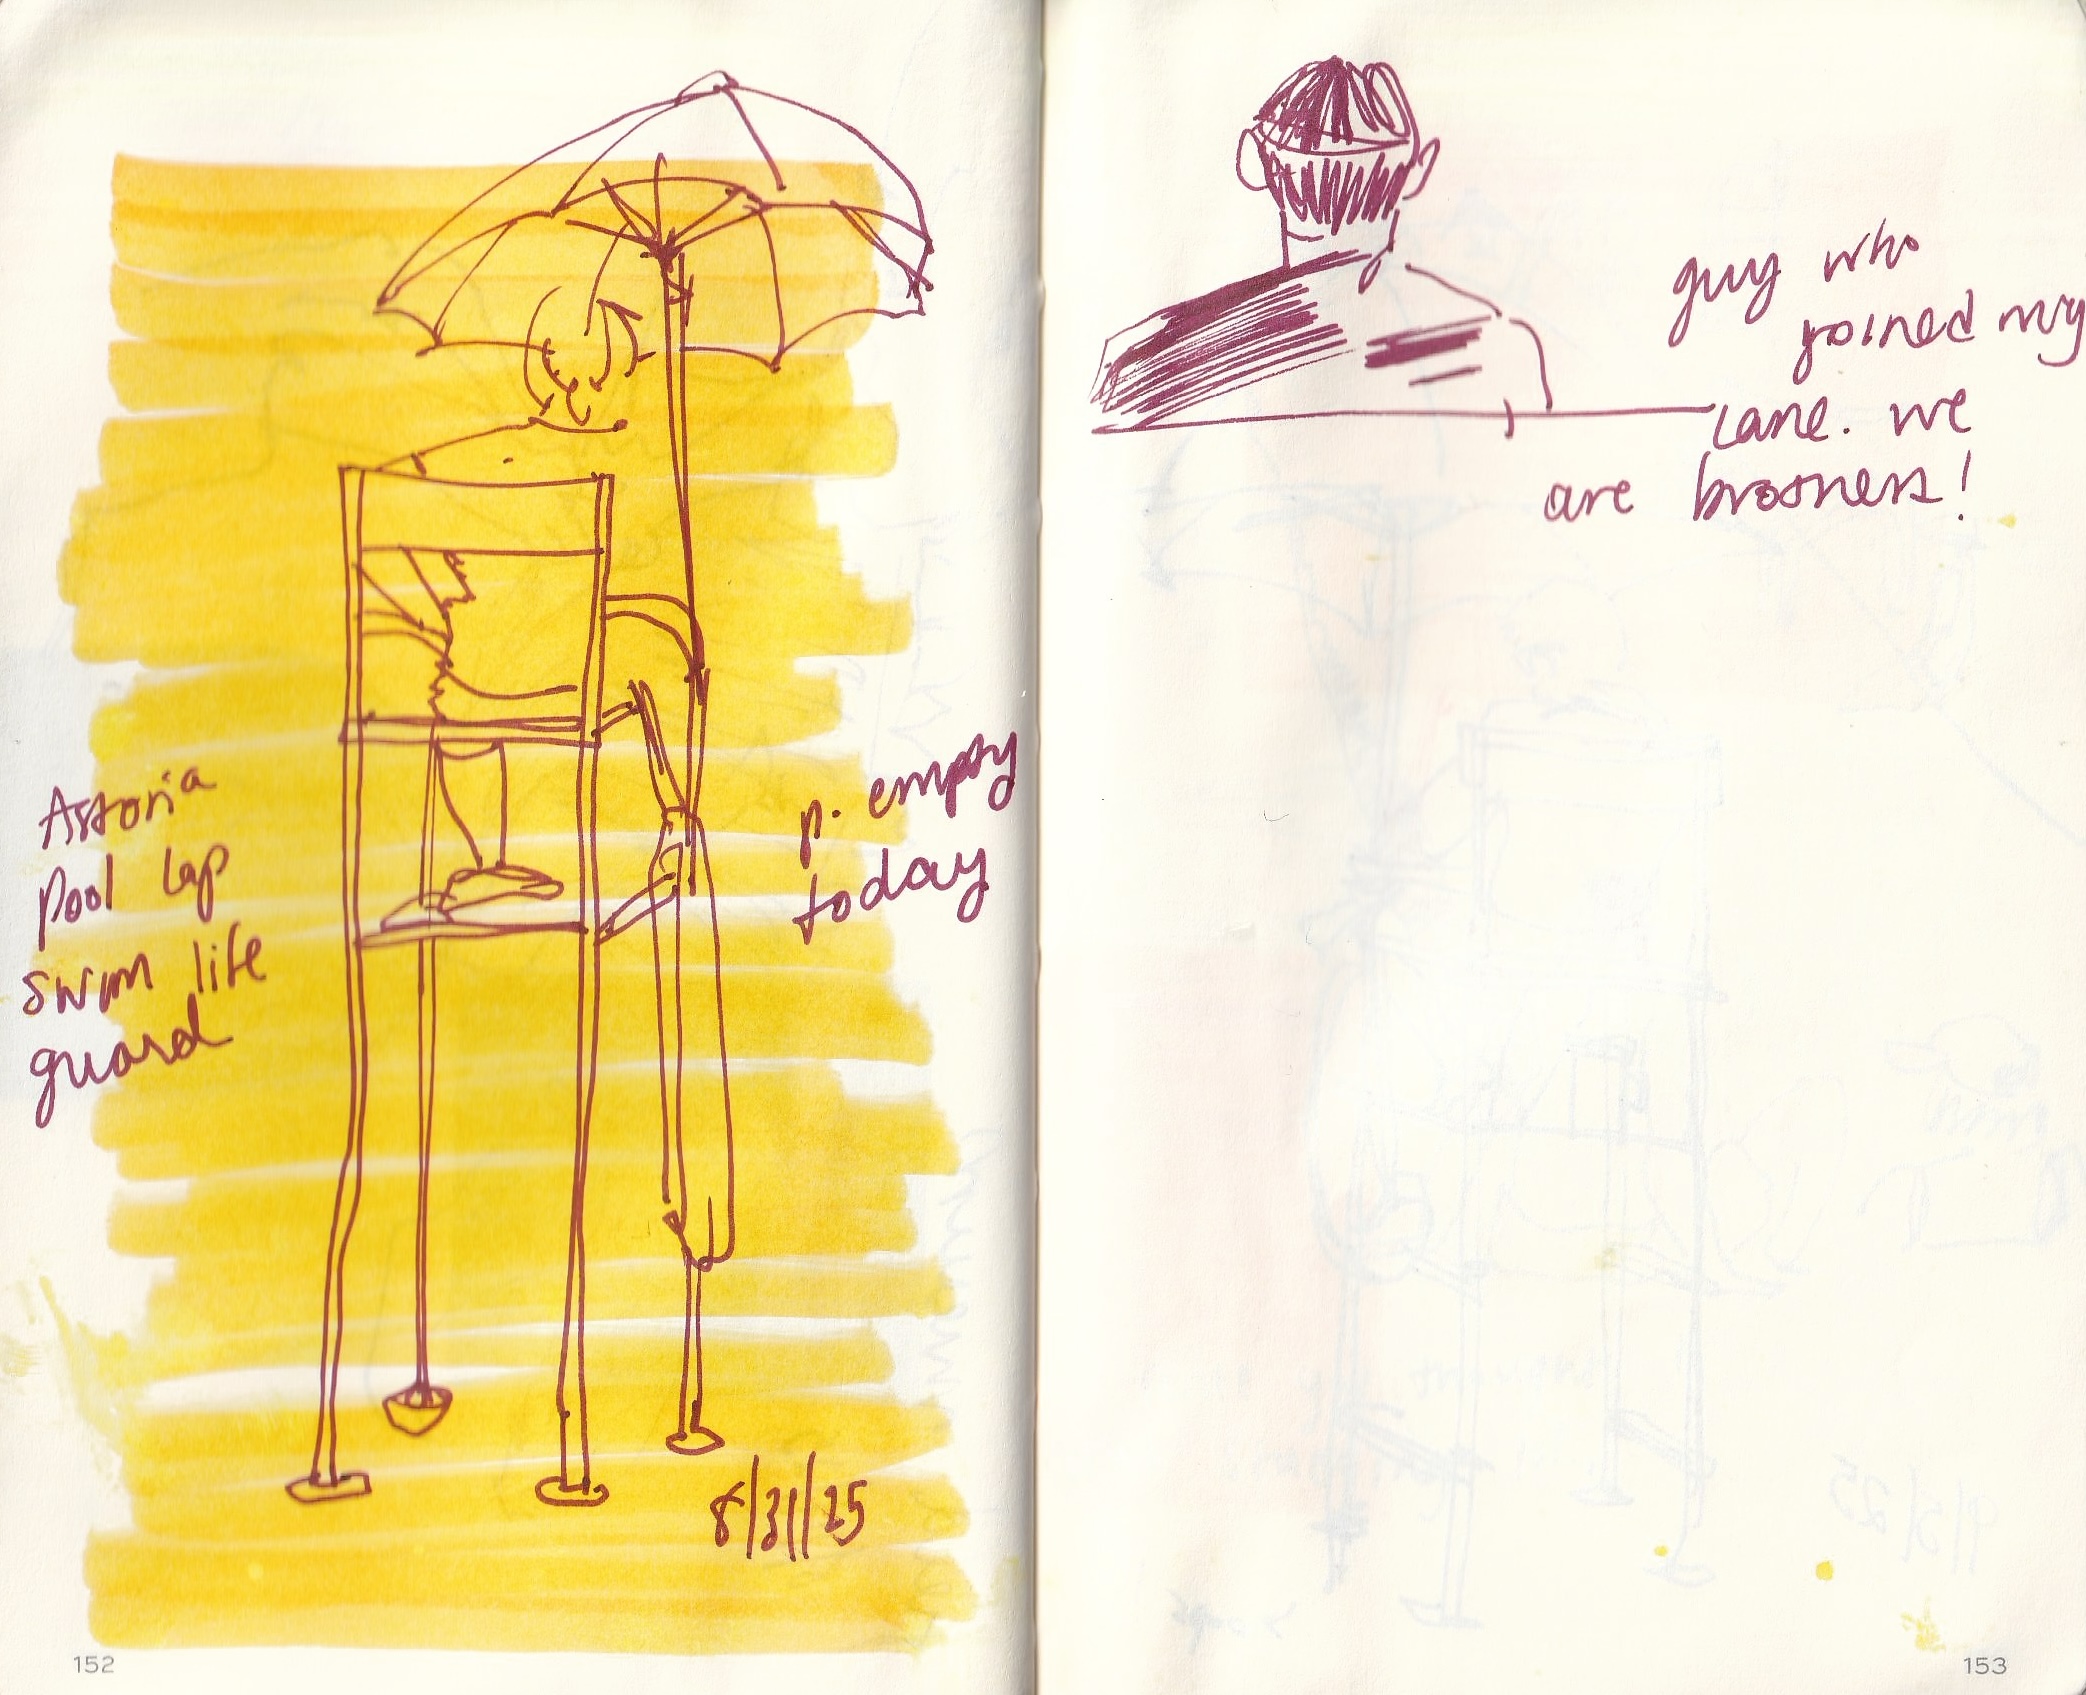 Astoria
pool lap
swim life
guard
p. empty
today
8/31/25
152
guy who
joined my
lane. we
are brothers!
153